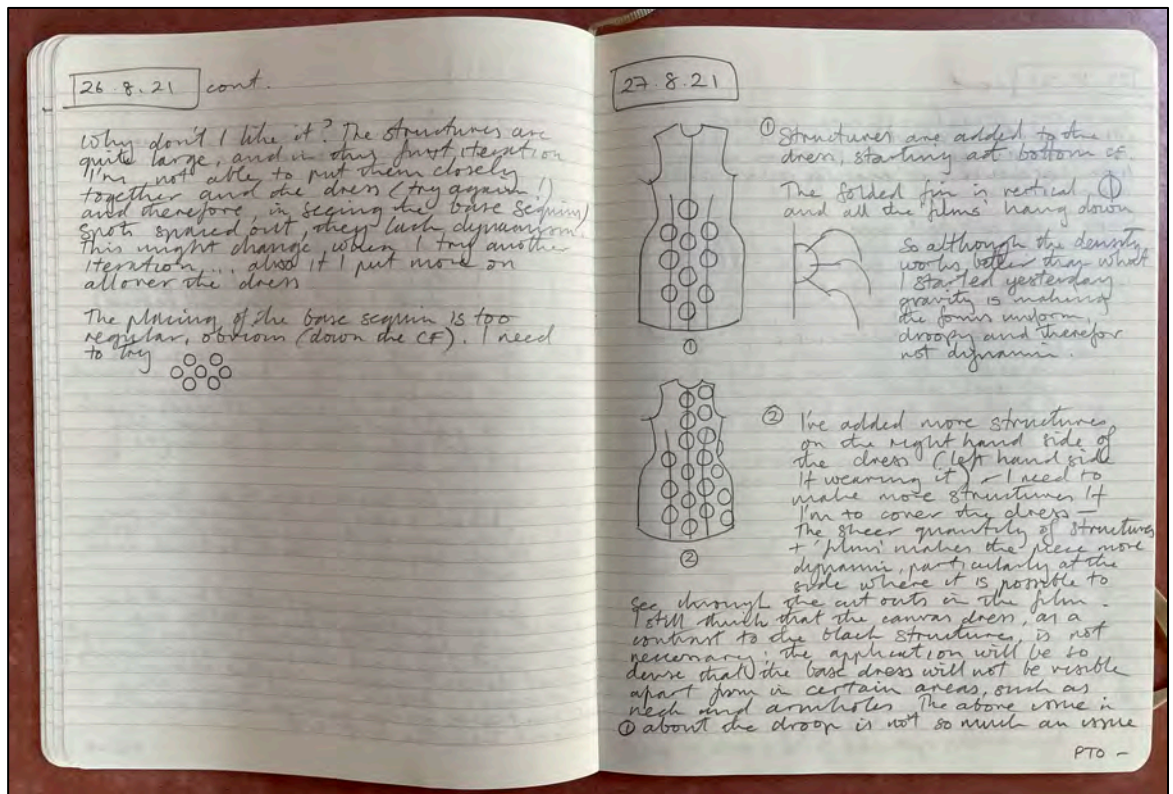 26.8.21 cont.
Why don't I like it? The structures are
quite large, and in this first iteration
I'm not able to put them closely
together and the dress (try again!)
and therefore, in seeing the base sequin
spots spaced out, they lack dynamism.
This might change, when I try another
iteration... also if I put more on
allover the dress
The placing of the base sequin is too
regular, obvious (down the CF). I need
to try
27.8.21
① Structures are added to the
dress, starting at bottom CF.
The folded fin is vertical,
and all the 'films' hang down
So although the density
works better than what
I started yesterday
gravity is making
the forms uniform,
droopy and therefor
not dynamic.
①
② I've added more structures
on the right hand side of
the dress (left hand side
if wearing it) - I need to
make more structures if
I'm to cover the dress —
The sheer quantity of structures
+ 'films' makes the piece more
dynamic, particularly at the
side where it is possible to
②
see through the cut outs in the film.
I still think that the canvas dress, as a
contrast to the black structures, is not
necessary; the application will be so
dense that the base dress will not be visible
apart from in certain areas, such as
neck and armholes. The above issue in
① about the droop is not so much an issue
PTO -